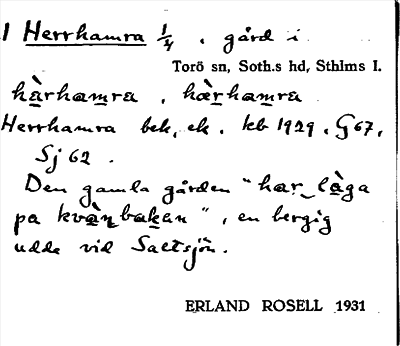 1 Herrhamra 1/4. gård i
Torö sn, Soth.s hd, Sthlms l.
hàrhamra, hæ̀rhamra
Herrhamra bek, ek. kb 1929. G67,
Sj 62.
Den gamla gården "har låga
pa kvànbakan", en bergig
udde vid Saltsjön.
ERLAND ROSELL 1931